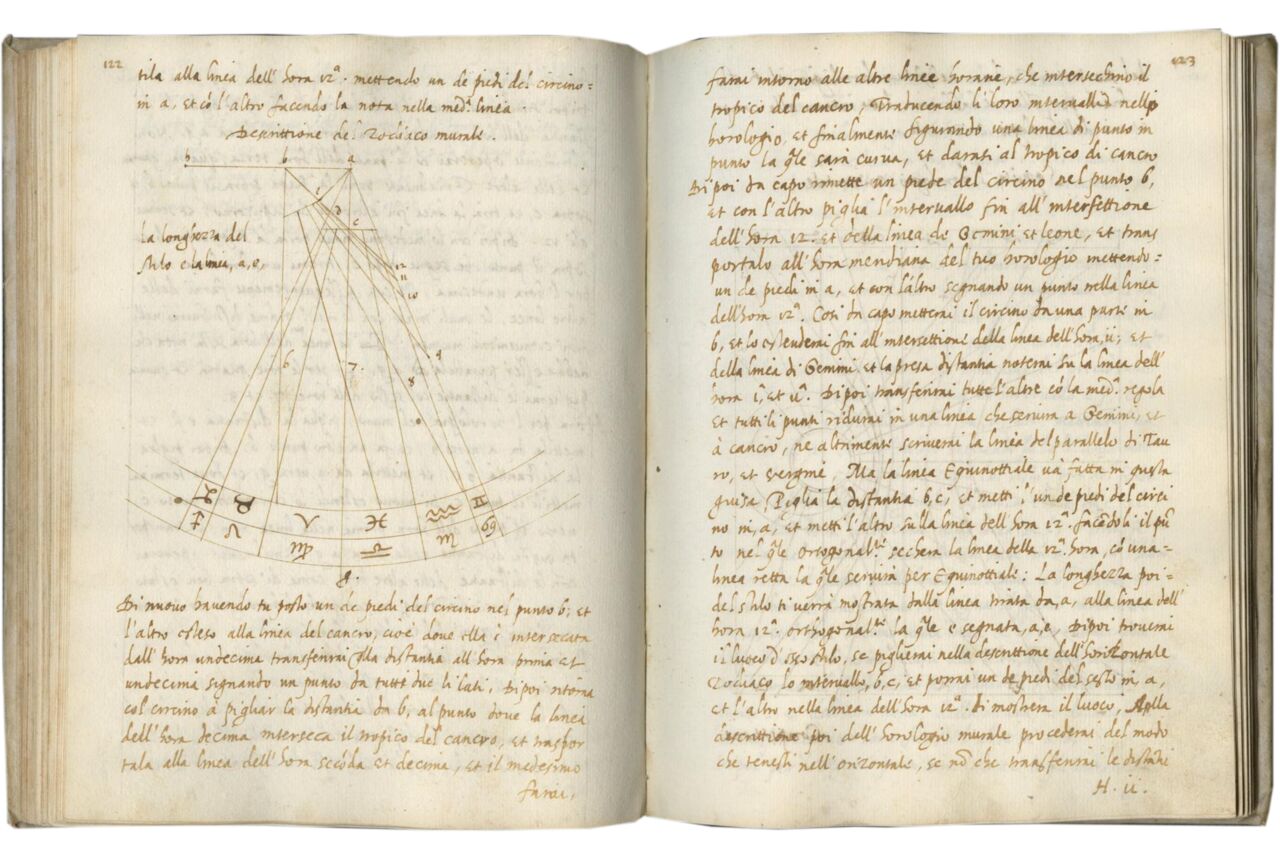 122
tila alla linea dell' hora 12ª. mettendo un de piedi del circino =
in a, et cõ l'altro facendo la nota nella med.ª linea.
Descrittione del Zodiaco murale.
h b a
i
d
c
La longhezza del
stilo e la linea, a, e,
12
11
10
9
8
7.
6
♑ ♉ ♈ ♓ ♒ ♊
♐ ♌ ♍ ♎ ♏ ♋
g.
Di nuovo havendo tu posto un de piedi del circino nel punto b; et
l'altro esteso alla linea del cancro, cioè dove ella è intersecata
dall' hora undecima transferirai la distantia all' hora prima et
undecima signando un punto da tutte due li lati, Dipoi ritorna
col circino à pigliar la distantia da b, al punto dove la linea
dell' hora decima interseca il tropico del cancro, et traspor
tala alla linea dell' hora secõda et decima, et il medesimo
farai,
123
farai intorno alle altre linee horarie, che intersechino il
tropico del cancro, Traducendo li loro intervalli nello
horologio, et finalmente figurando una linea di punto in
punto la qle sarà curua, et darasi al tropico di cancro
Di poi da capo rimette un piede del circino nel punto b,
et con l'altro piglia l'intervallo fin all' intersettione
dell' hora 12. et della linea de Gemini et leone, et tras
portalo all' hora meridiana del tuo horologio mettendo =
un de piedi in a, et con l'altro segnando un punto nella linea
dell' hora 12ª. Cosi da capo metterai il circino da una parte in
b, et lo estenderai fin all' intersettione della linea dell' hora, ii; et
della linea di Gemini et la presa distantia noterai su la linea dell'
hora i, et ii. Dipoi transferirai tutte l'altre cõ la med.ª regola
et tutti li punti ridurai in una linea che servira a Gemini, et
à cancro, ne altrimente scriverai la linea del parallelo di Tau
ro, et vergine, Ma la linea Equinottiale và fatta in questa
guisa, Piglia la distantia b, c, et metti l'un de piedi del circi
no in, a, et metti l'altro sulla linea dell' hora 12ª. facẽdoli il pũ
to nel qle ortogonal.te sechera la linea della 12ª. hora, cõ una =
linea retta la qle servirà per Equinottiale: La longhezza poi =
del stilo ti verrà mostrata dalla linea tirata da, a, alla linea dell'
hora 12ª. orthogonal.te la qle e segnata, a, e, Dipoi troverai
il luoco d'esso stilo, se piglierai nella descrittione dell' horizontale
Zodiaco lo intervallo, b, e, et porrai un de piedi del sesto in a,
et l'altro nella linea dell' hora 12ª. di mostrera il luoco, Nella
descrittione poi dell' horologio murale procederai del modo
che tenesti nell' orizontale, se nõ che transferirai le distãti
H. ii.